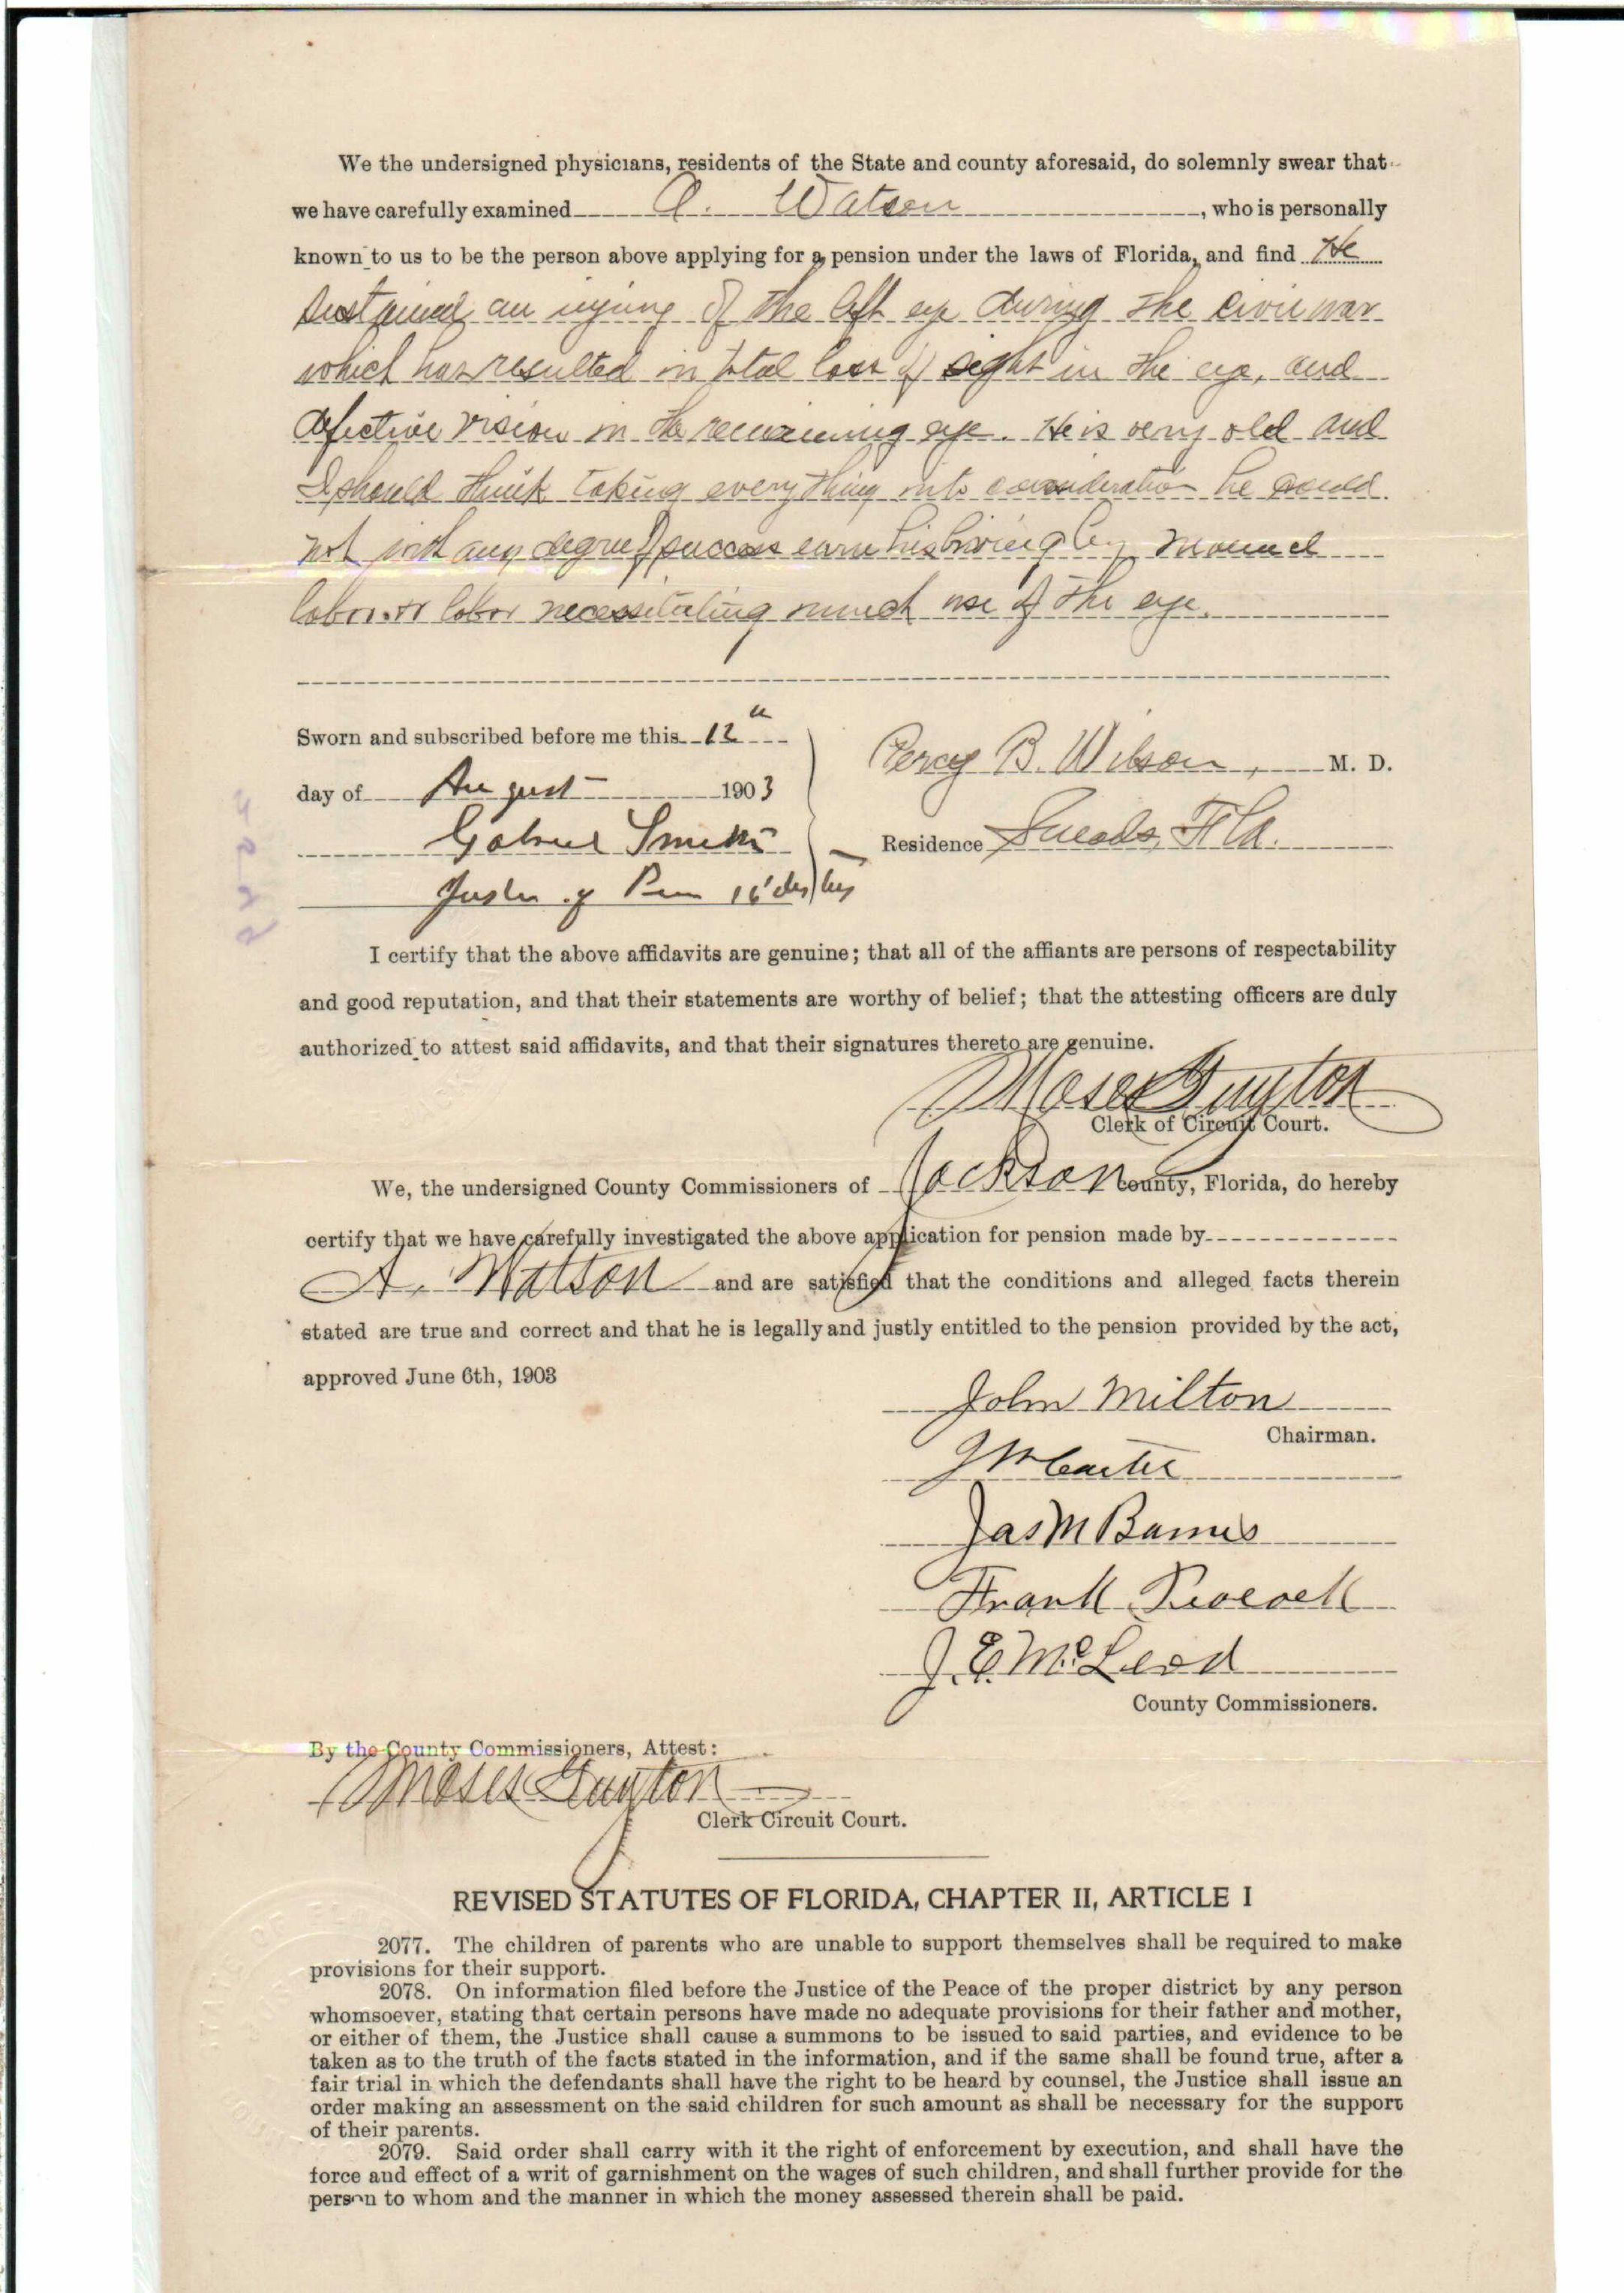 We the undersigned physicians, residents of the State and county aforesaid, do solemnly swear that
we have carefully examined A. Watson, who is personally
known to us to be the person above applying for a pension under the laws of Florida, and find He
sustained an injury of the left eye during the civil war
which has resulted in total loss of sight in the eye, and
defective vision in the remaining eye. He is very old and
I should think taking everything into consideration he could
not with any degree of success earn his living by manual
labor or labor necessitating much use of the eye.
Sworn and subscribed before me this 12th
day of August 1903
Percy B. Wilson, M. D.
Gabriel Smith
Residence Sneads, Fla.
16
I certify that the above affidavits are genuine; that all of the affiants are persons of respectability
and good reputation, and that their statements are worthy of belief; that the attesting officers are duly
authorized to attest said affidavits, and that their signatures thereto are genuine.
Moses Guyton
Clerk of Circuit Court.
We, the undersigned County Commissioners of Jackson County, Florida, do hereby
certify that we have carefully investigated the above application for pension made by
A. Watson and are satisfied that the conditions and alleged facts therein
stated are true and correct and that he is legally and justly entitled to the pension provided by the act,
approved June 6th, 1903
John Milton
Chairman.
Carter
Jas M Barnes
Frank Peacock
J. E. McLeod
County Commissioners.
By the County Commissioners, Attest:
Moses Guyton
Clerk Circuit Court.
REVISED STATUTES OF FLORIDA, CHAPTER II, ARTICLE I
2077. The children of parents who are unable to support themselves shall be required to make
provisions for their support.
2078. On information filed before the Justice of the Peace of the proper district by any person
whomsoever, stating that certain persons have made no adequate provisions for their father and mother,
or either of them, the Justice shall cause a summons to be issued to said parties, and evidence to be
taken as to the truth of the facts stated in the information, and if the same shall be found true, after a
fair trial in which the defendants shall have the right to be heard by counsel, the Justice shall issue an
order making an assessment on the said children for such amount as shall be necessary for the support
of their parents.
2079. Said order shall carry with it the right of enforcement by execution, and shall have the
force and effect of a writ of garnishment on the wages of such children, and shall further provide for the
person to whom and the manner in which the money assessed therein shall be paid.